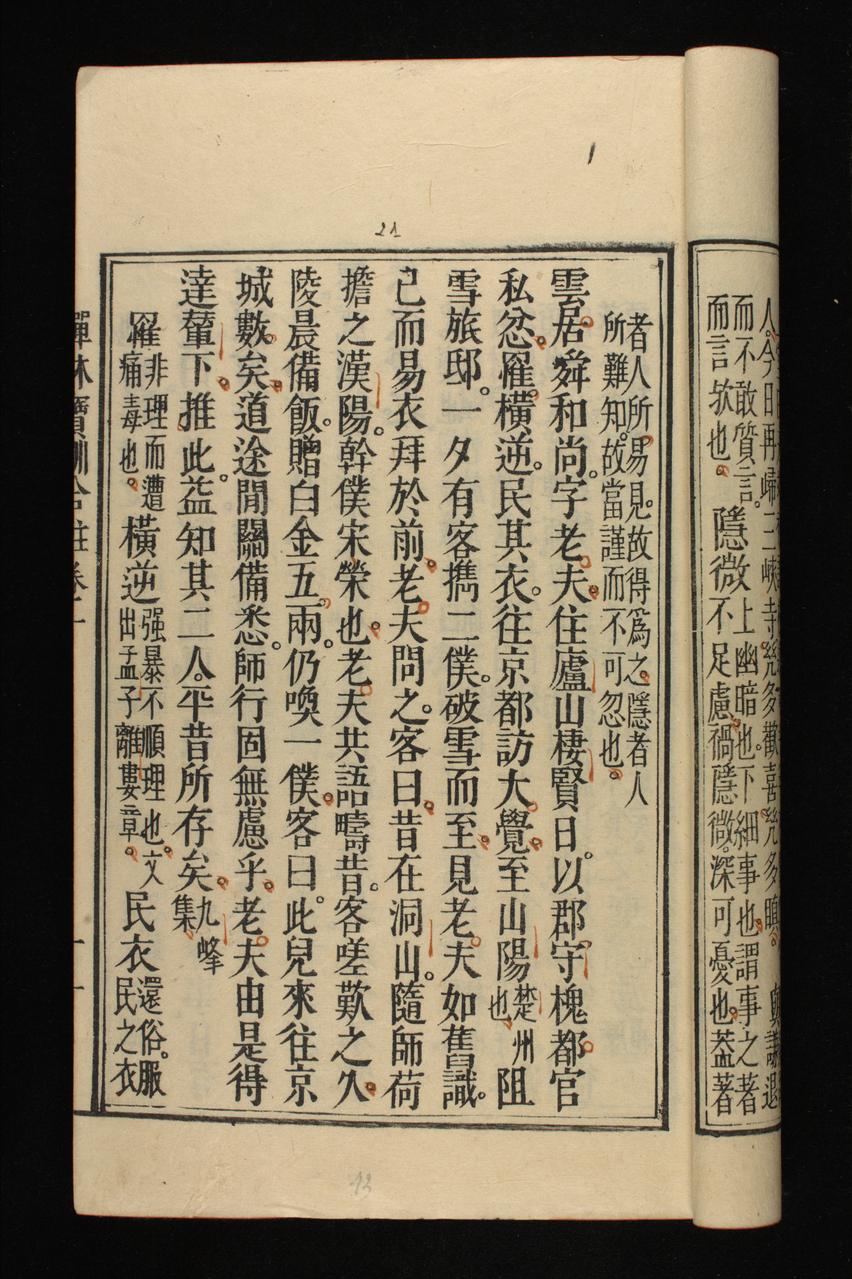 人今日再歸三峽寺。幾多歡喜幾多瞋。
而不敢質言。
而言欤也。
隱微
上幽暗也。下細事也。謂事之著
不足慮。禍隱微。深可憂也。葢著
者人所易見。故得爲之。隱者人
所難知。故當謹而不可忽也。
雲居舜和尚。字老夫。住廬山棲賢日。以郡守槐都官
私忿。罹橫逆。民其衣。往京都訪大覺。至山陽楚州也。阻
雪旅邸。一夕有客携二僕。破雪而至。見老夫如舊識。
已而易衣拜於前。老夫問之。客曰。昔在洞山。隨師荷
擔之漢陽。幹僕宋榮也。老夫共語疇昔。客嗟歎之久。
陵晨備飯。贈白金五兩。仍喚一僕。客曰。此兒來往京
城數矣。道途間關備悉。師行固無慮乎。老夫由是得
達輦下。推此。葢知其二人。平昔所存矣。九峰集
罹非理而遭痛毒也。橫逆强暴不順理也。文出孟子離婁章。民衣還俗。服民之衣
禪林寶訓合註卷二 十一
21